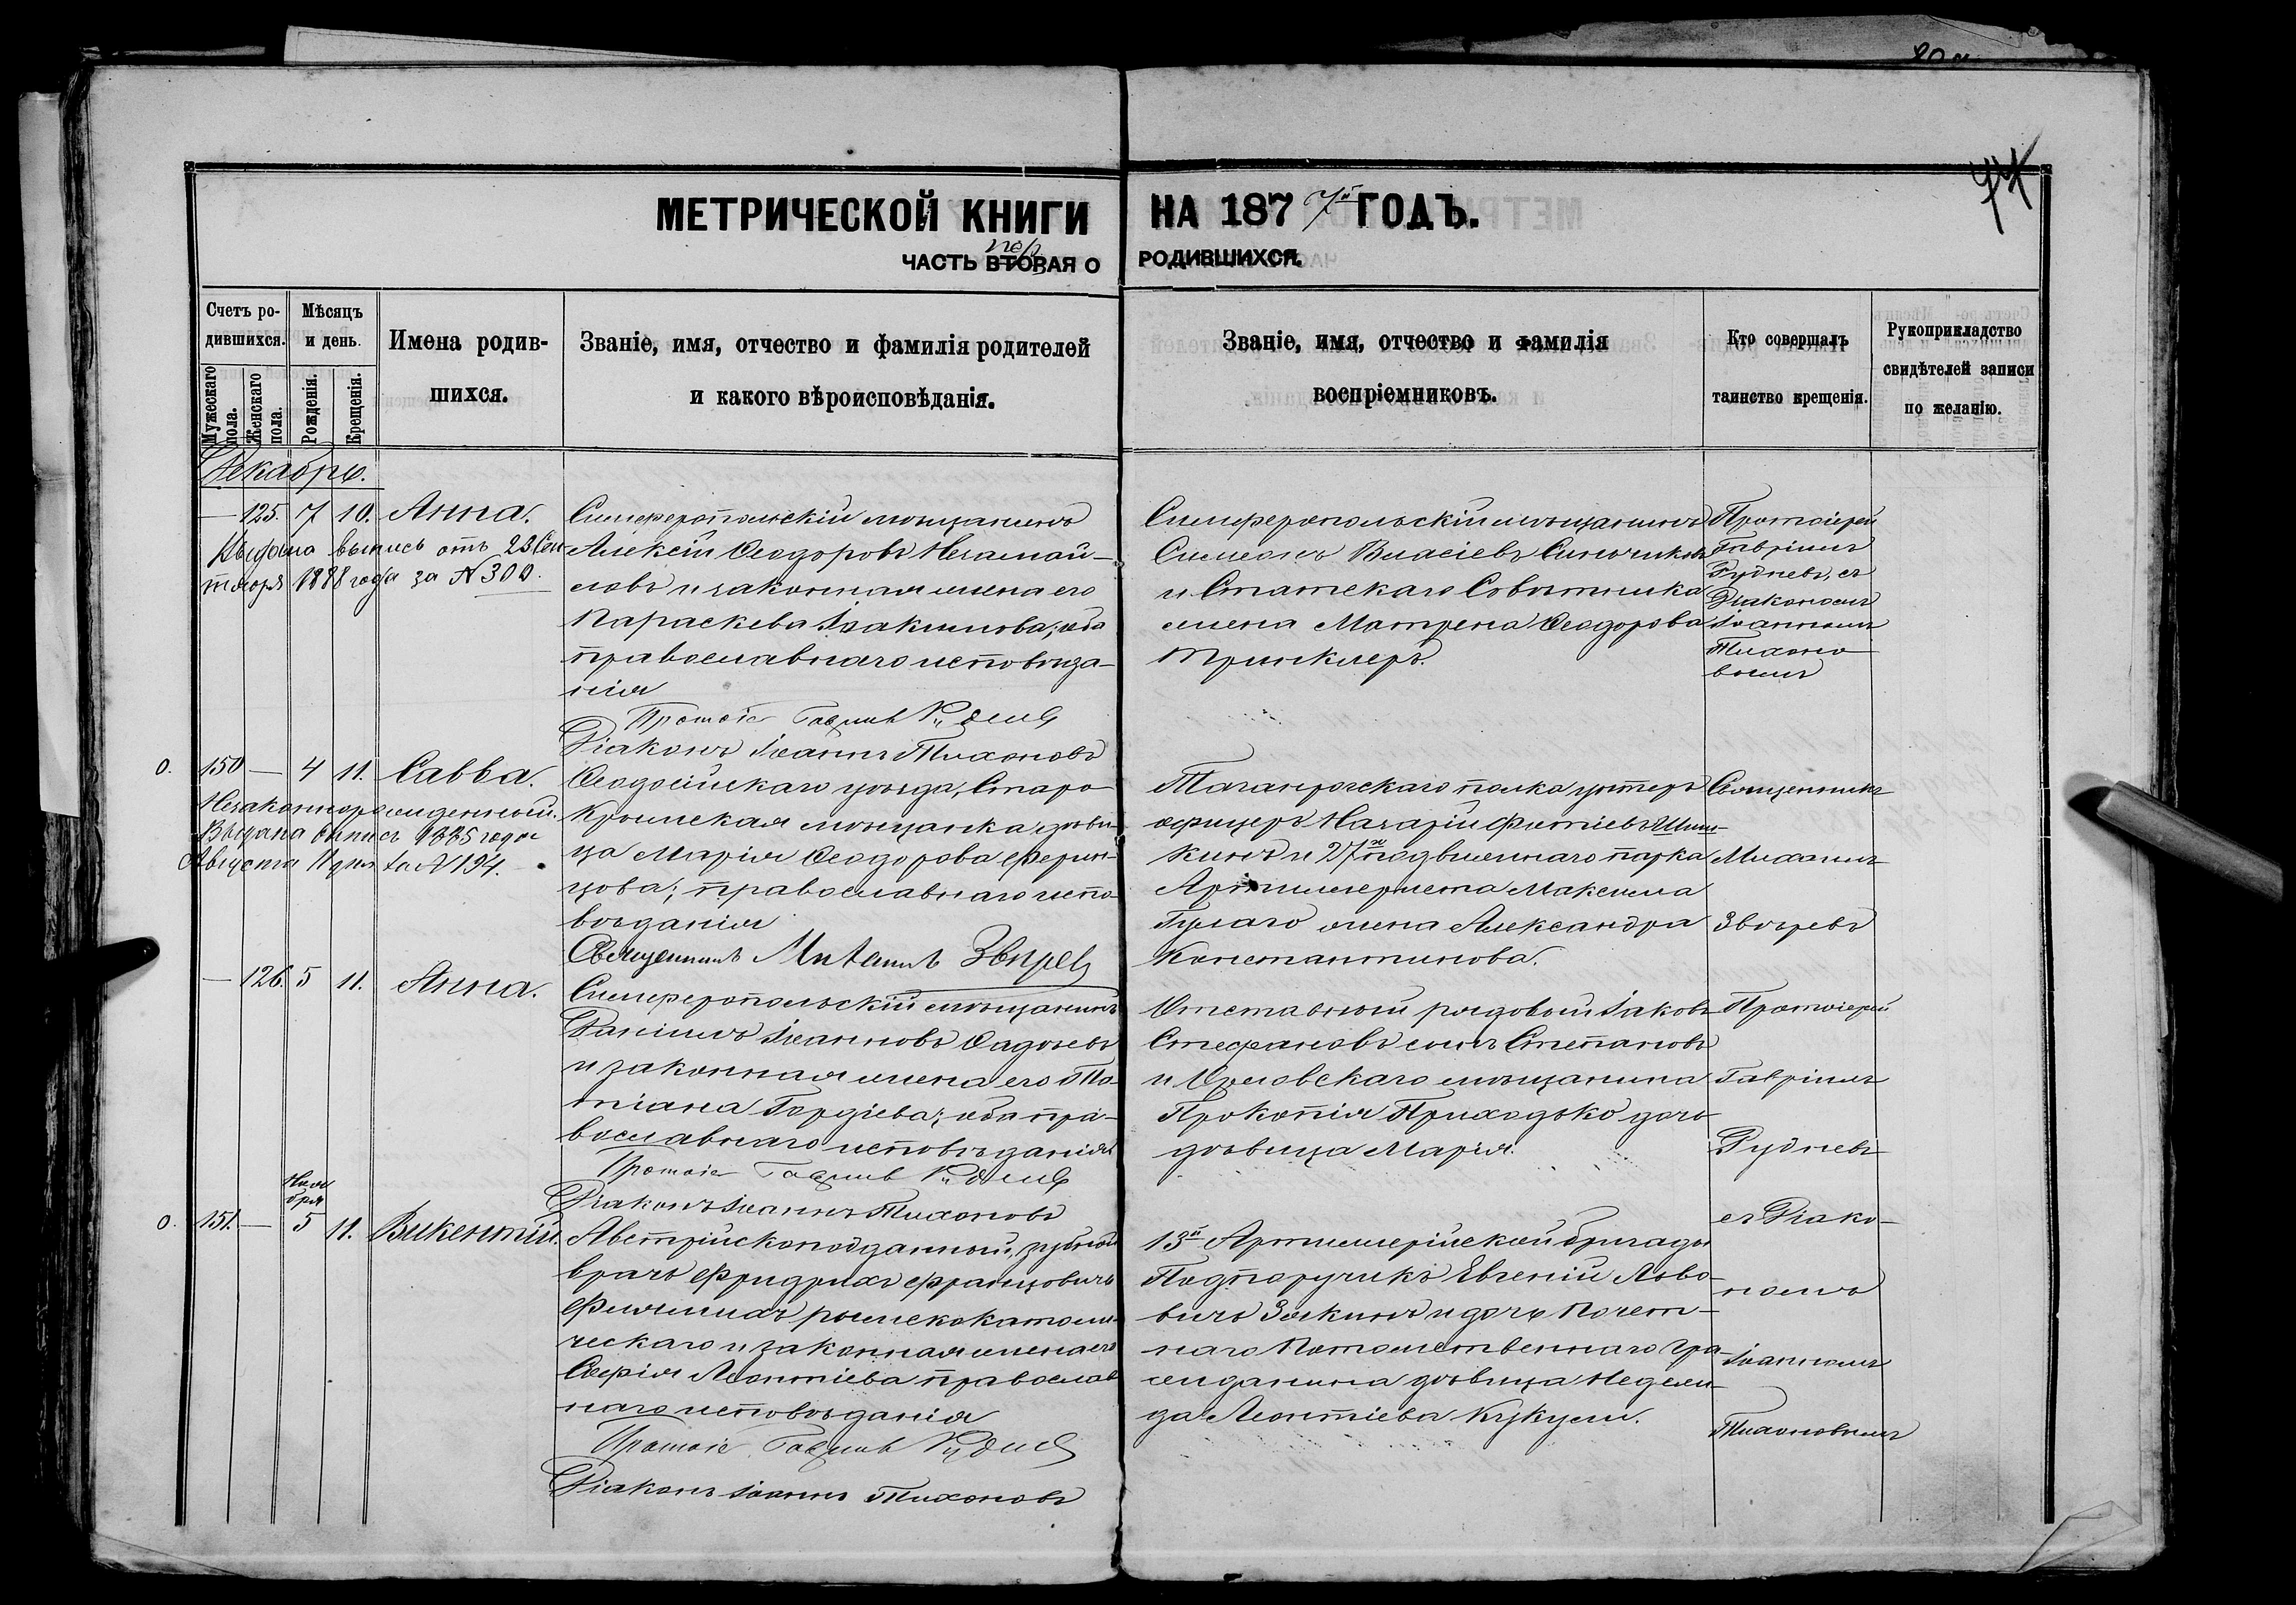 МЕТРИЧЕСКОЙ КНИГИ НА 1877й ГОДЪ.
ЧАСТЬ ВТОРАЯ О РОДИВШИХСЯ.
пер
Счетъ ро-
дившихся.
Мужескаго пола.
Женскаго пола.
Мѣсяцъ
и день.
Рожденія.
Крещенія.
Имена родив-
шихся.
Званіе, имя, отчество и фамилія родителей
и какого вѣроисповѣданія.
Званіе, имя, отчество и фамилія
воспріемниковъ.
Кто совершалъ
таинство крещенія.
Рукоприкладство
свидѣтелей записи
по желанію.
Декабрь.
— 125. 7 10. Анна.
Выдана выпись отъ 23 Сен
тября 1888 года за № 300.
Симферопольскій мѣщанинъ
Алексій Ѳеодоровъ
и законная жена его
Параскева Іоакимова; оба
православнаго исповѣда-
нія
Діаконъ Іоаннъ Тихоновъ
Симферопольскій мѣщанинъ
Симеонъ Власіевъ
и Статскаго Совѣтника
жена Матрена Ѳеодорова
Тринклеръ.
Протоіерей
Гавріилъ
Рудневъ, съ
Діакономъ
Іоанномъ
Тихоно-
вымъ
0. 150 — 4 11. Савва.
Незаконнорожденный.
Выдана выпись 1885 года
Августа 11 дня за № 194.
Ѳеодосійскаго уѣзда, Старо-
Крымская мѣщанка дѣви-
ца Марія Ѳеодорова
православнаго испо-
вѣданія
Священникъ Михаилъ Звѣревъ
Таганрогскаго полка унтеръ
офицеръ Назарій Фотіевъ Шиш-
кинъ и 27й подвижнаго парка
Артиллериста Максима
Гулаго жена Александра
Константинова.
Священникъ
Михаилъ
Звѣревъ
— 126. 5 11. Анна.
Симферопольскій мѣщанинъ
Даніилъ Іоанновъ
и законная жена его Та-
тіана Гордіева; оба пра-
вославнаго исповѣданія
Діаконъ Іоаннъ Тихоновъ
Отставной рядовой Іаковъ
Стефановъ сынъ Степановъ
и Орловскаго мѣщанина
Прокопія Приходько дочь
дѣвица Марія.
Протоіерей
Гавріилъ
Рудневъ
съ Діако-
номъ
Іоанномъ
Тихоновымъ
Ноя
бря
0. 151. — 5 11. Викентій.
Австрійскоподданный, зубной
врачъ Фридрихъ Францовичъ
римскокатоли-
ческаго и законная жена его
Софія Леонтіева православ
наго исповѣданія
Діаконъ Іоаннъ Тихоновъ
13й Артиллерійской бригады
Подпоручикъ Евгеній Льво-
вичъ Зыкинъ и дочь Почет-
наго Потомственнаго Гра-
жданина дѣвица Надеж-
да Леонтіева